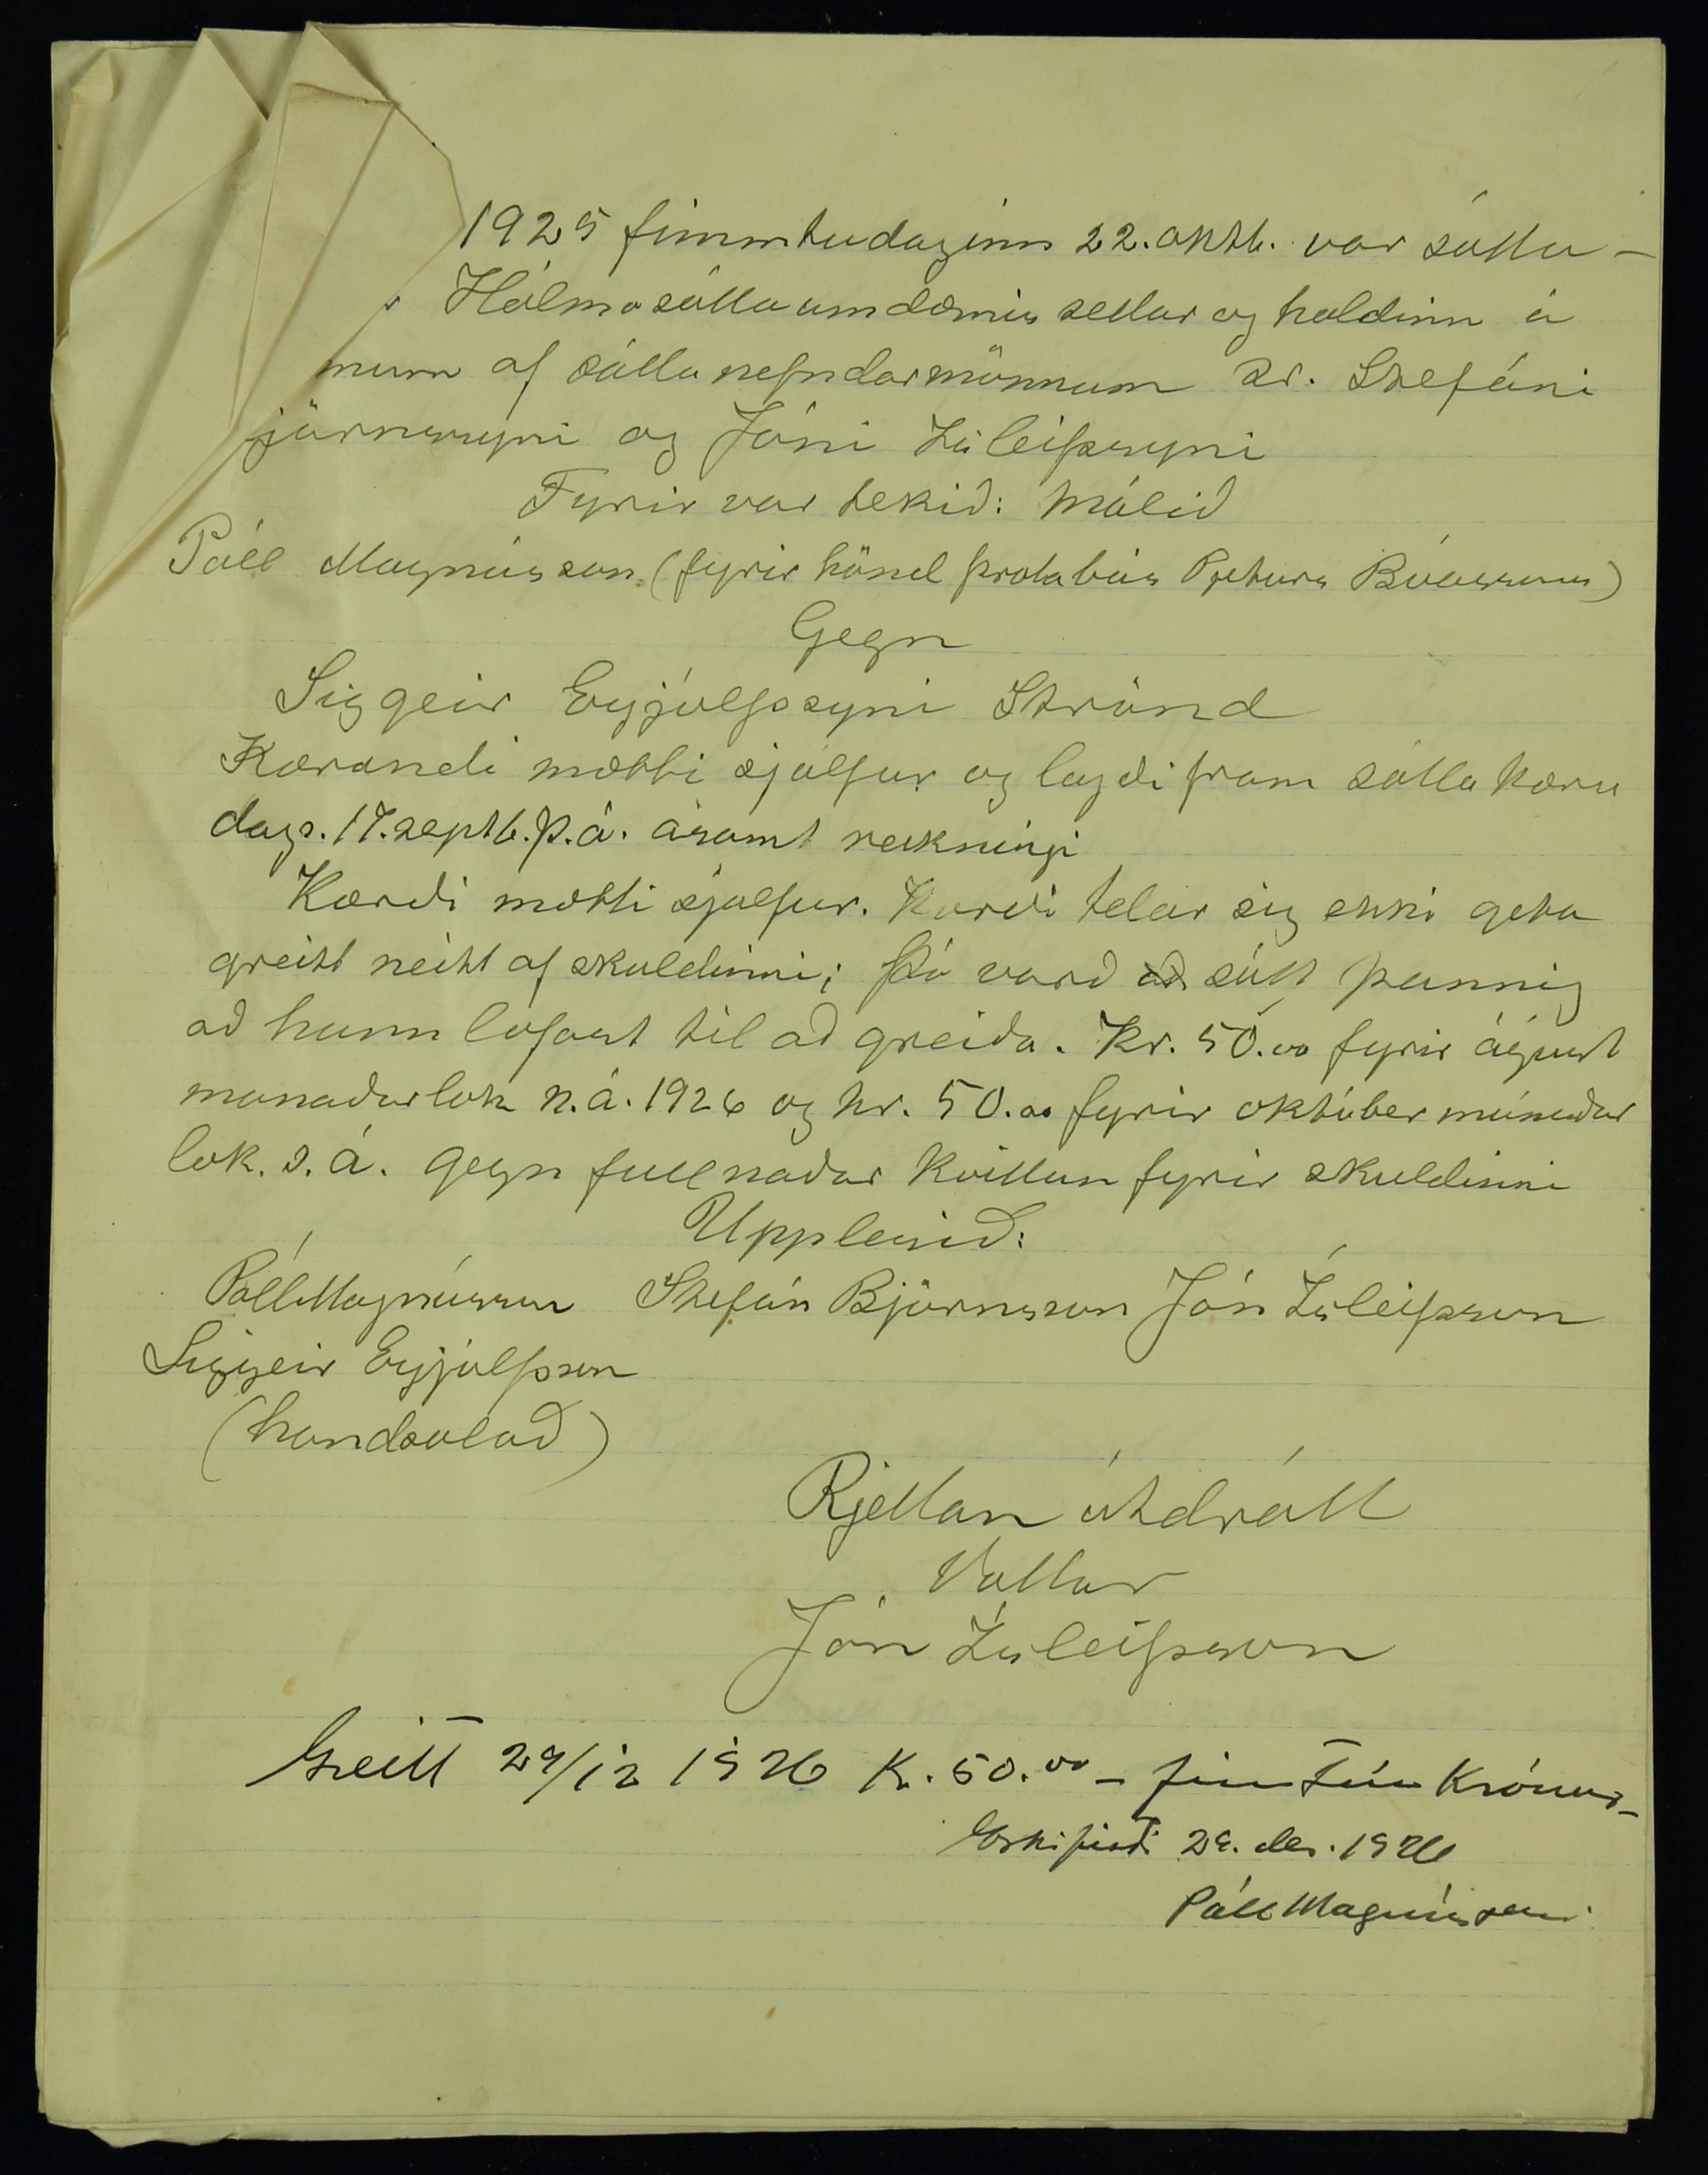 1925 fimmtudaginn 22. oktb. var sátta-
Hólmasáttaumdæmis settur og haldinn á
mum af sáttanefndarmönnum sr. Stefáni
jörnssyni og Jóni Ísleifssyni
Fyrir var tekið: Málið
Páll Magnússon (fyrir hönd þrotabús Pjeturs Bóassonar)
Gegn
Siggeir Eyjólfssyni Strönd
Kærandi mætti sjálfur og lagði fram sáttakæru
dags. 17. septb. þ.á. ásamt reikningi
Kærði mætti sjálfur. Kærði telur sig ekki geta
greitt neitt af skuldinni; þó varð að sátt þannig
að hann lofast til að greiða. Kr. 50.00 fyrir ágúst
manaðarlok n.á. 1926 og kr. 50.00 fyrir október mánaðar
lok. s.á. gegn fullnaðar kvittun fyrir skuldinni
Upplesið:
Páll Magnússon Stefán Björnsson Jón Ísleifsson
Siggeir Eyjólfsson
(handsalað)
Rjettan útdrátt
Vottar
Jón Ísleifsson
Greitt 29/12 1926 Kr. 50.00 - fimmtíu Krónur-
Eskifirði 29. des. 1926
Páll Magnússon